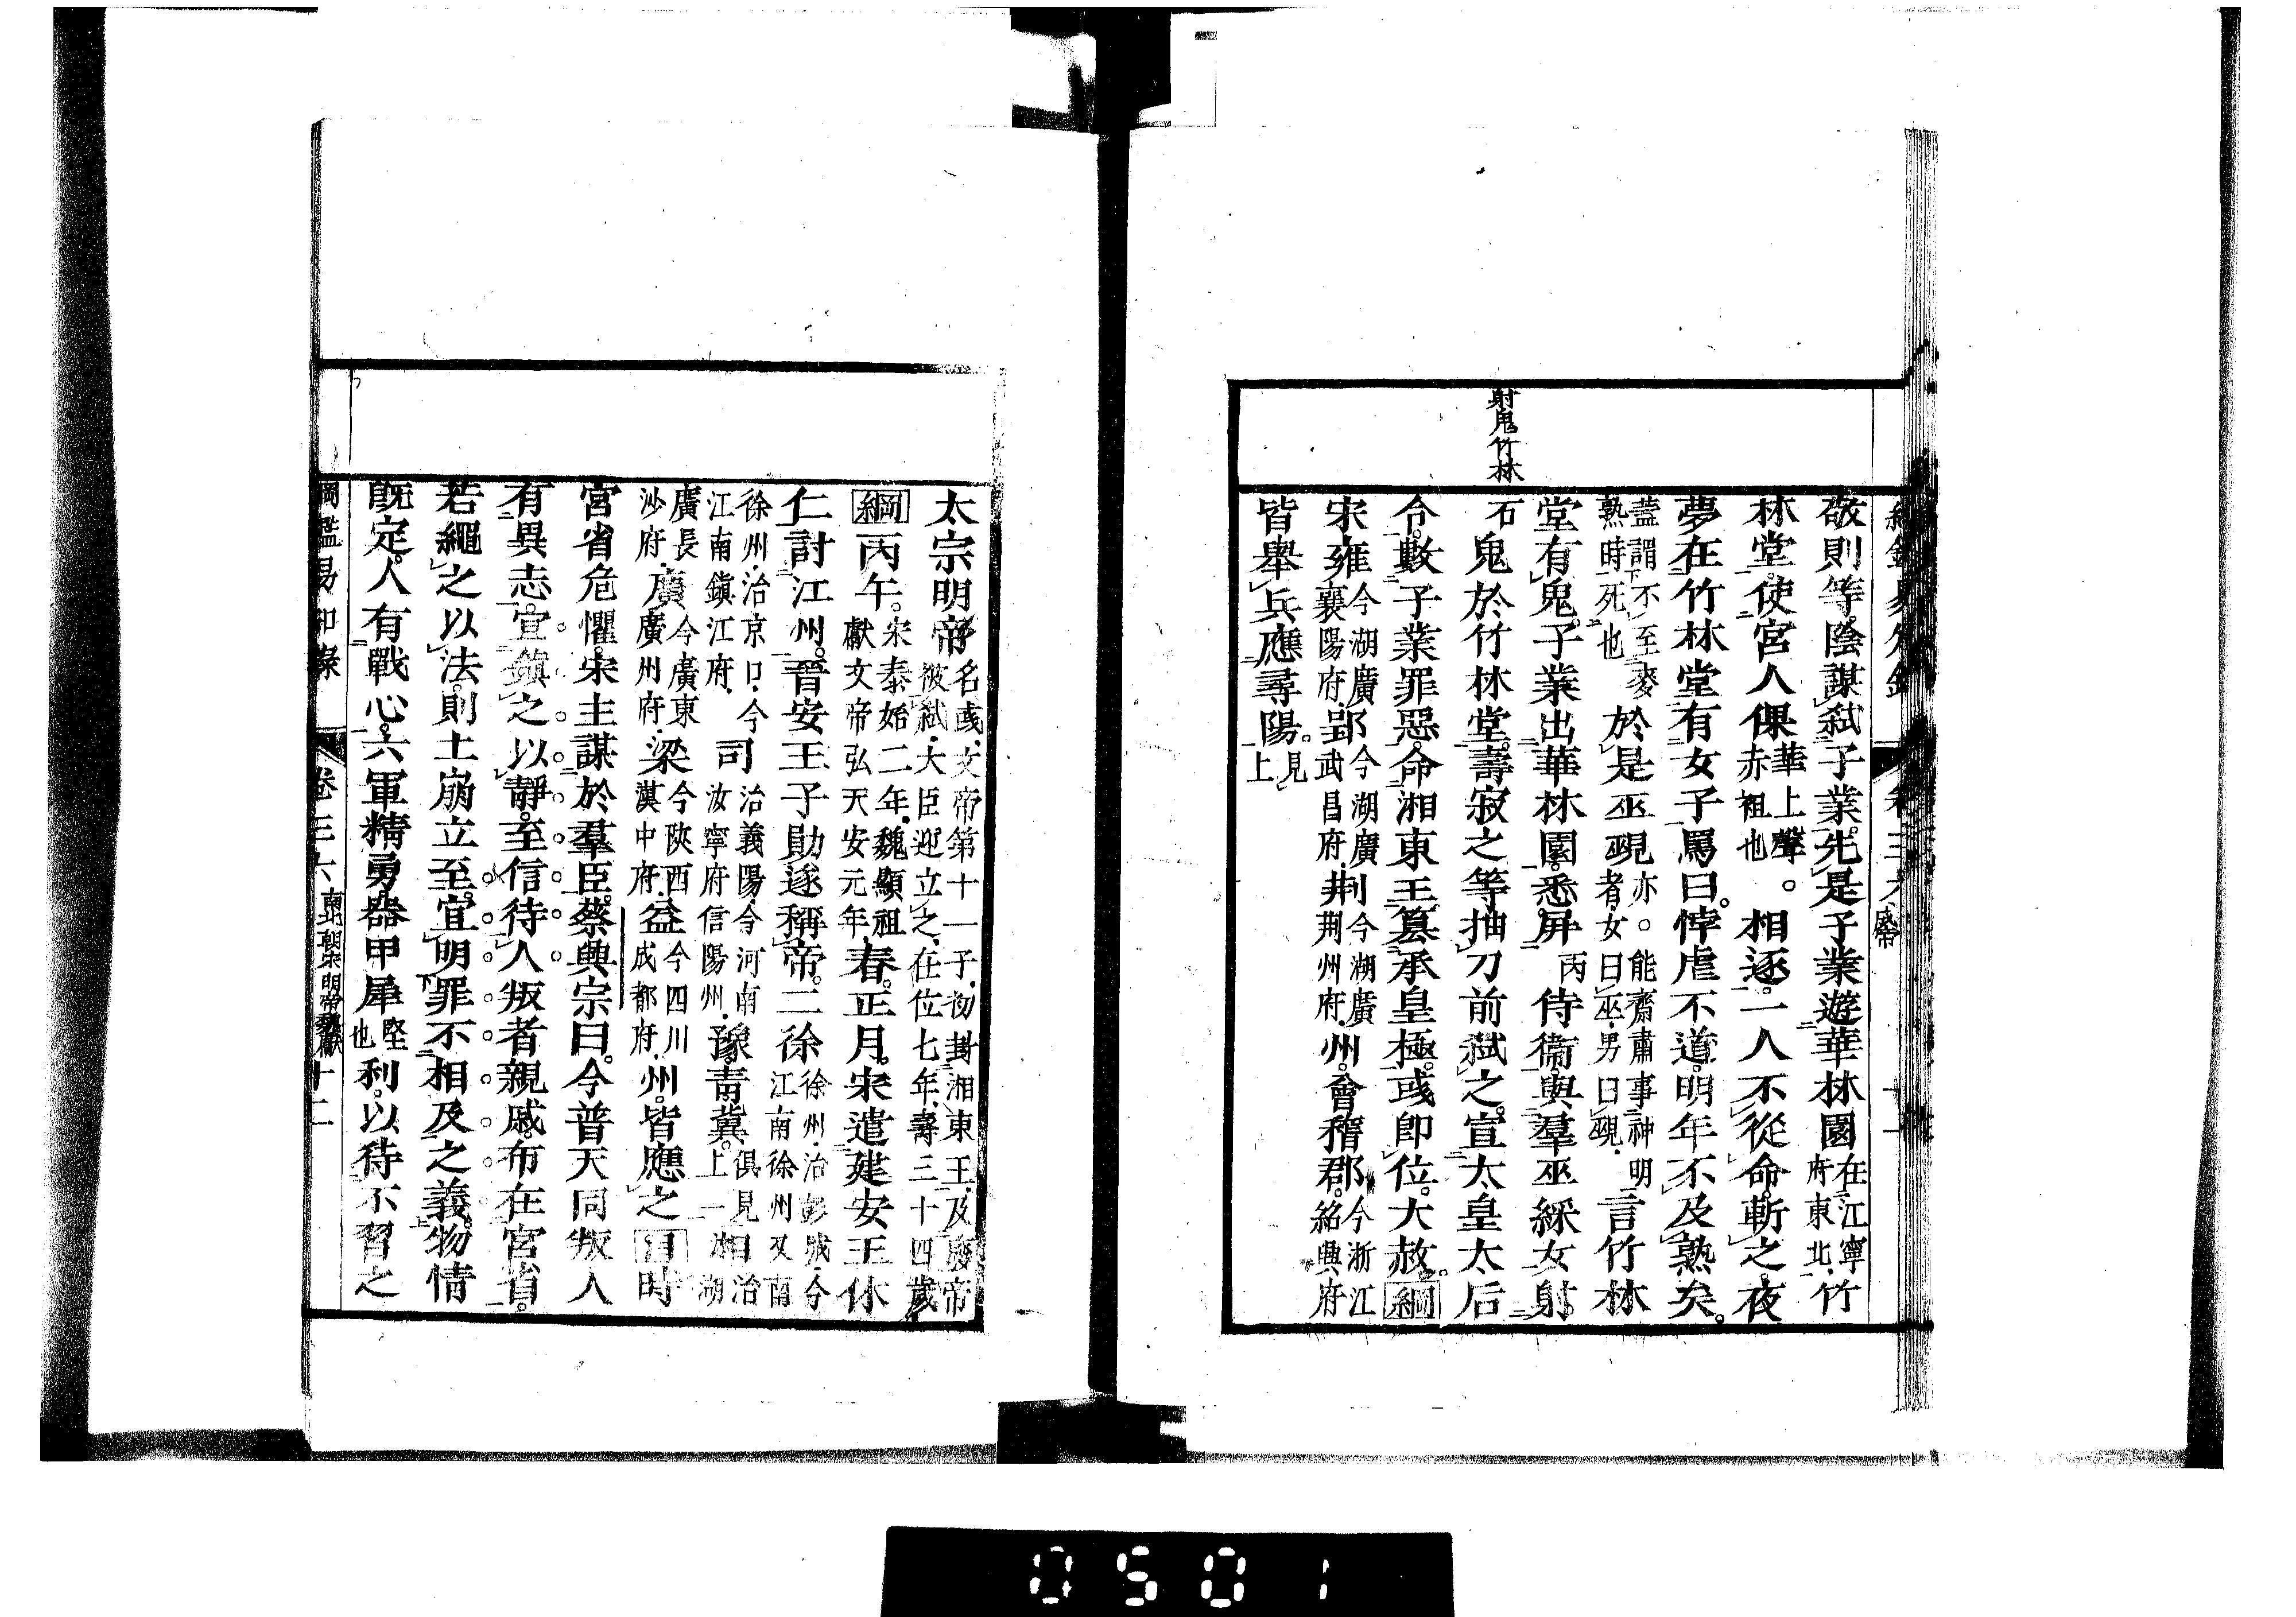 射鬼竹林
敬則等。陰謀弑子業。先是子業遊華林園在江寧府東北。竹
林堂。使宮人倮華上聲。赤袒也相逐。一人不從命。斬之。夜
夢在竹林堂有女子罵曰。悖虐不道。明年不及熟矣。
蓋謂不至麥熟時死也於是巫覡者。女曰巫。男曰覡。亦能齋肅事神明言竹林
堂有鬼。子業出華林園。悉屏丙侍衞。與羣巫綵女射
石鬼於竹林堂。壽寂之等抽刀前弑之。宣太皇太后
令。數子業罪惡。命湘東王纂承皇極。彧即位。大赦。綱
宋雍今湖廣襄陽府。郢今湖廣武昌府。荆今湖廣荆州府。州。會稽郡。今浙江紹興府
皆舉兵應尋陽。見上
太宗明帝名彧。文帝第十一子。初封湘東王。及廢帝被弑。大臣迎立之。在位七年。壽三十四歲。
綱丙午。宋泰始二年。魏顯祖獻文帝弘天安元年。春。正月。宋遣建安王休
仁討江州。晉安王子勛遂稱帝。二徐徐州。治彭城。今江南徐州又南
徐州。治京口。今江南鎮江府。司治義陽。今河南汝寧府信陽州。豫。青。冀。俱見上一目治湖
廣長沙府。廣今廣東廣州府。梁今陝西漢中府。益今四川成都府。州。皆應之目時
宮省危懼。宋主謀於羣臣。蔡興宗曰。今普天同叛。人
有異志。宜鎮之以靜。至信待人。叛者親戚。布在宮省。
若繩之以法。則土崩立至。宜明罪不相及之義。物情
旣定。人有戰心。六軍精勇。器甲犀堅也利。以待不習之
綱鑑易知錄 卷三六 南北朝宋明帝魏獻 十二